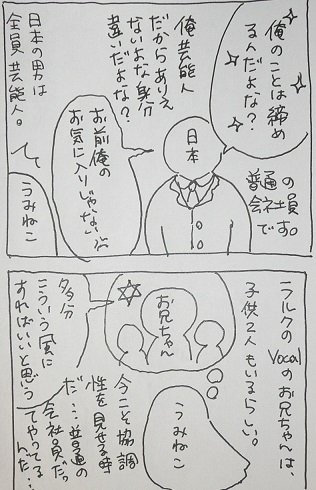 俺のことは締め
るんだよな？
俺芸能人
だからありえ
ないよな身分
違いだよな？
日本の男は
全員芸能人。
お前俺の
お気に入りじゃない
日本
普通の
会社員
です。
うみねこ
ラルクのVocalのお兄ちゃんは、
子供2人もいるらしい。
お兄ちゃん
うみねこ
今こそ協調
性を見せる時
だ…普通の
会社員だっ
てやってる
んだ…
多分
こういう風に
すればいいと思う